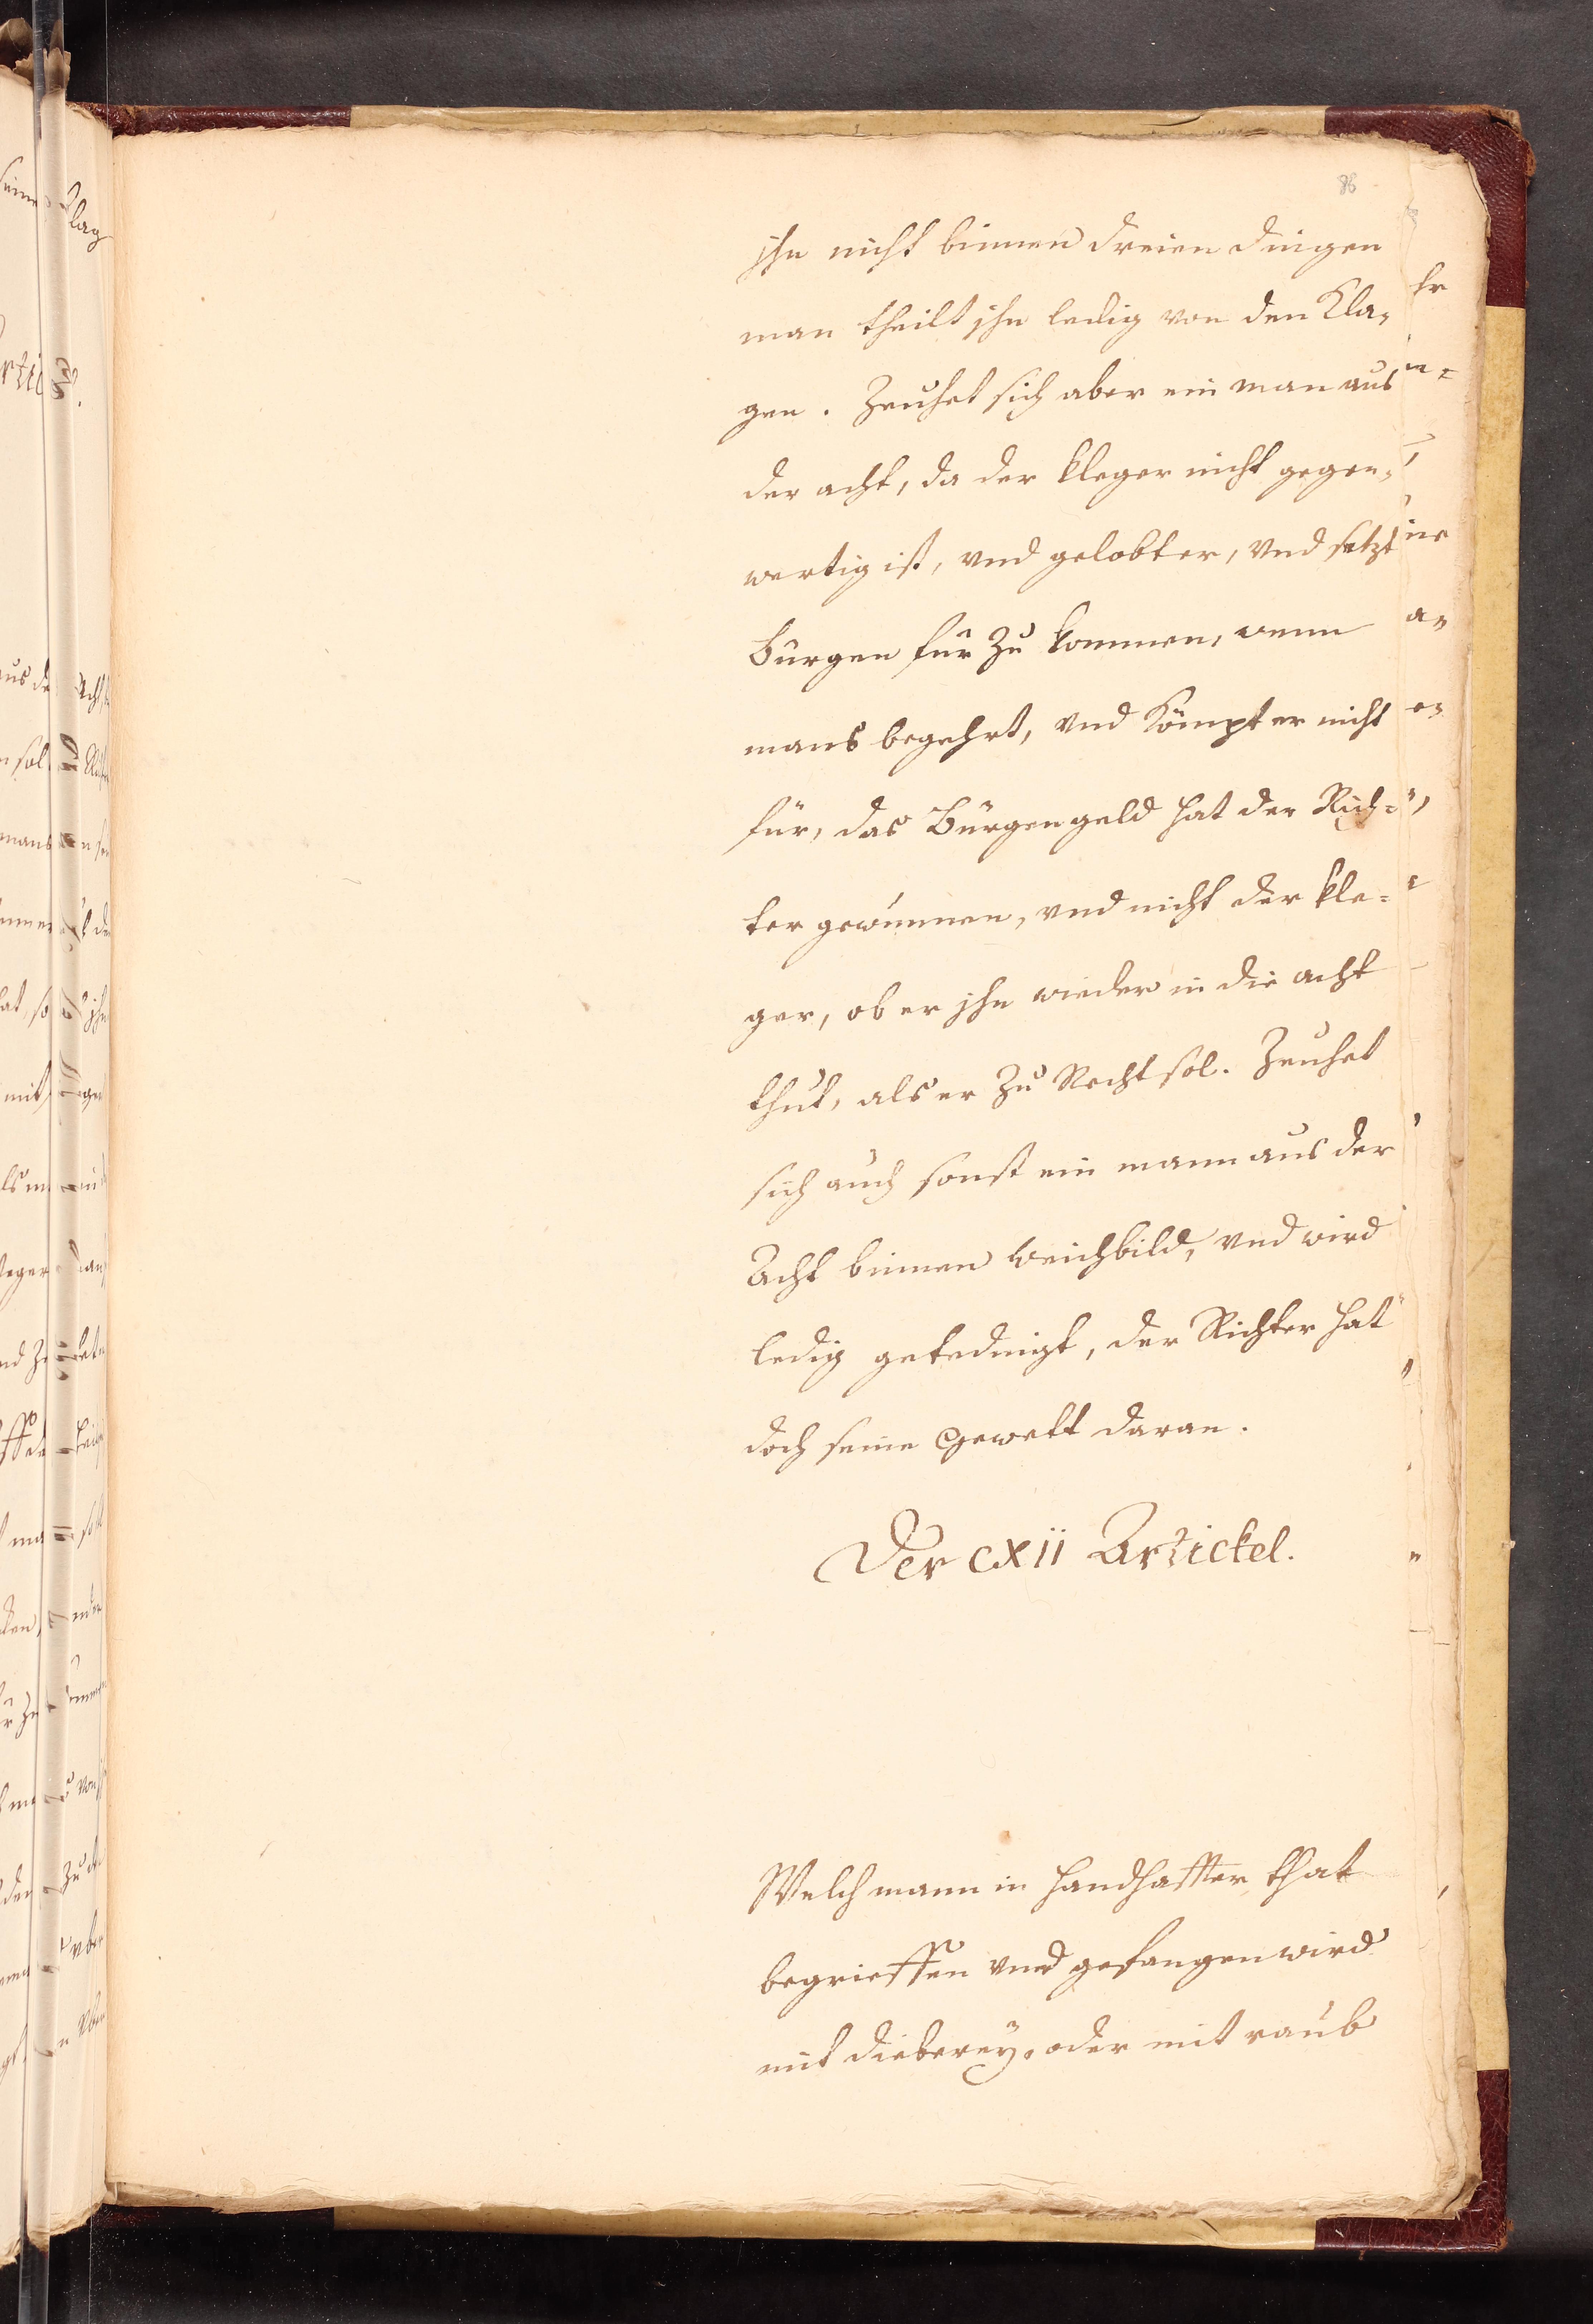 86
jhn nicht binnen dreien dingen
man theilt jhn ledig von den Kla-
gen. Zeuhet sich aber ein man aus
der acht, da der kleger nicht gegen-
wertig ist, vnd gelobt er, vnd setzt
Bürgen für zu kommen, wenn
mans begehrt, vnd kömpt er nicht
für, das Bürgengeld hat der Rich-
ter gewunnen, vnd nicht der kle-
ger, ob er jhn wieder in die acht
thut, als er zu Recht sol. Zeuhet
sich auch sonst ein mann aus der
Acht binnen weichbild, vnd wird
ledig getedingt, der Richter hat
doch seine Gewett daran.
Der cxii Artickel.
Welch mann in handhaffter that
begrieffen vnnd gefangen wird
mit dieberey, oder mit raub